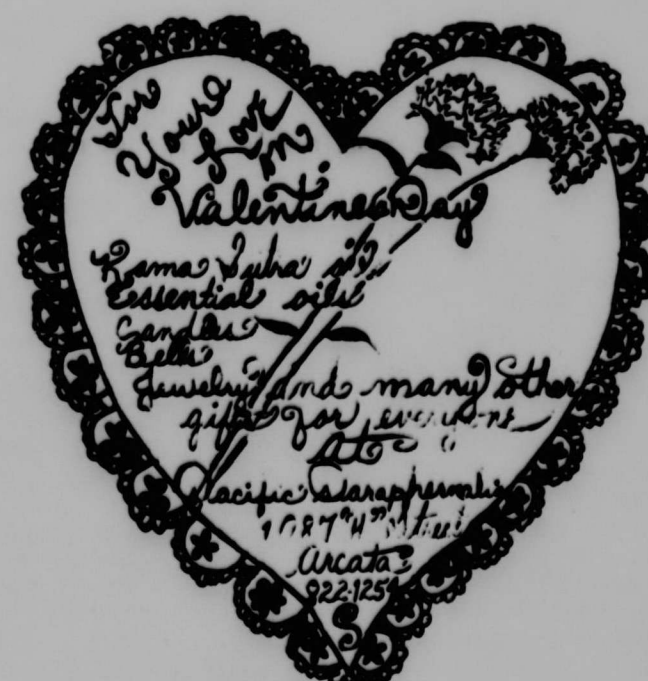 For
Your
Love
on
Valentines Day
Kama Sutra oil
Essential oils
Candles
Bells
Jewelry and many other
gifts for everyone
At
Pacific Paraphernalia
1087 "H" Street
Arcata